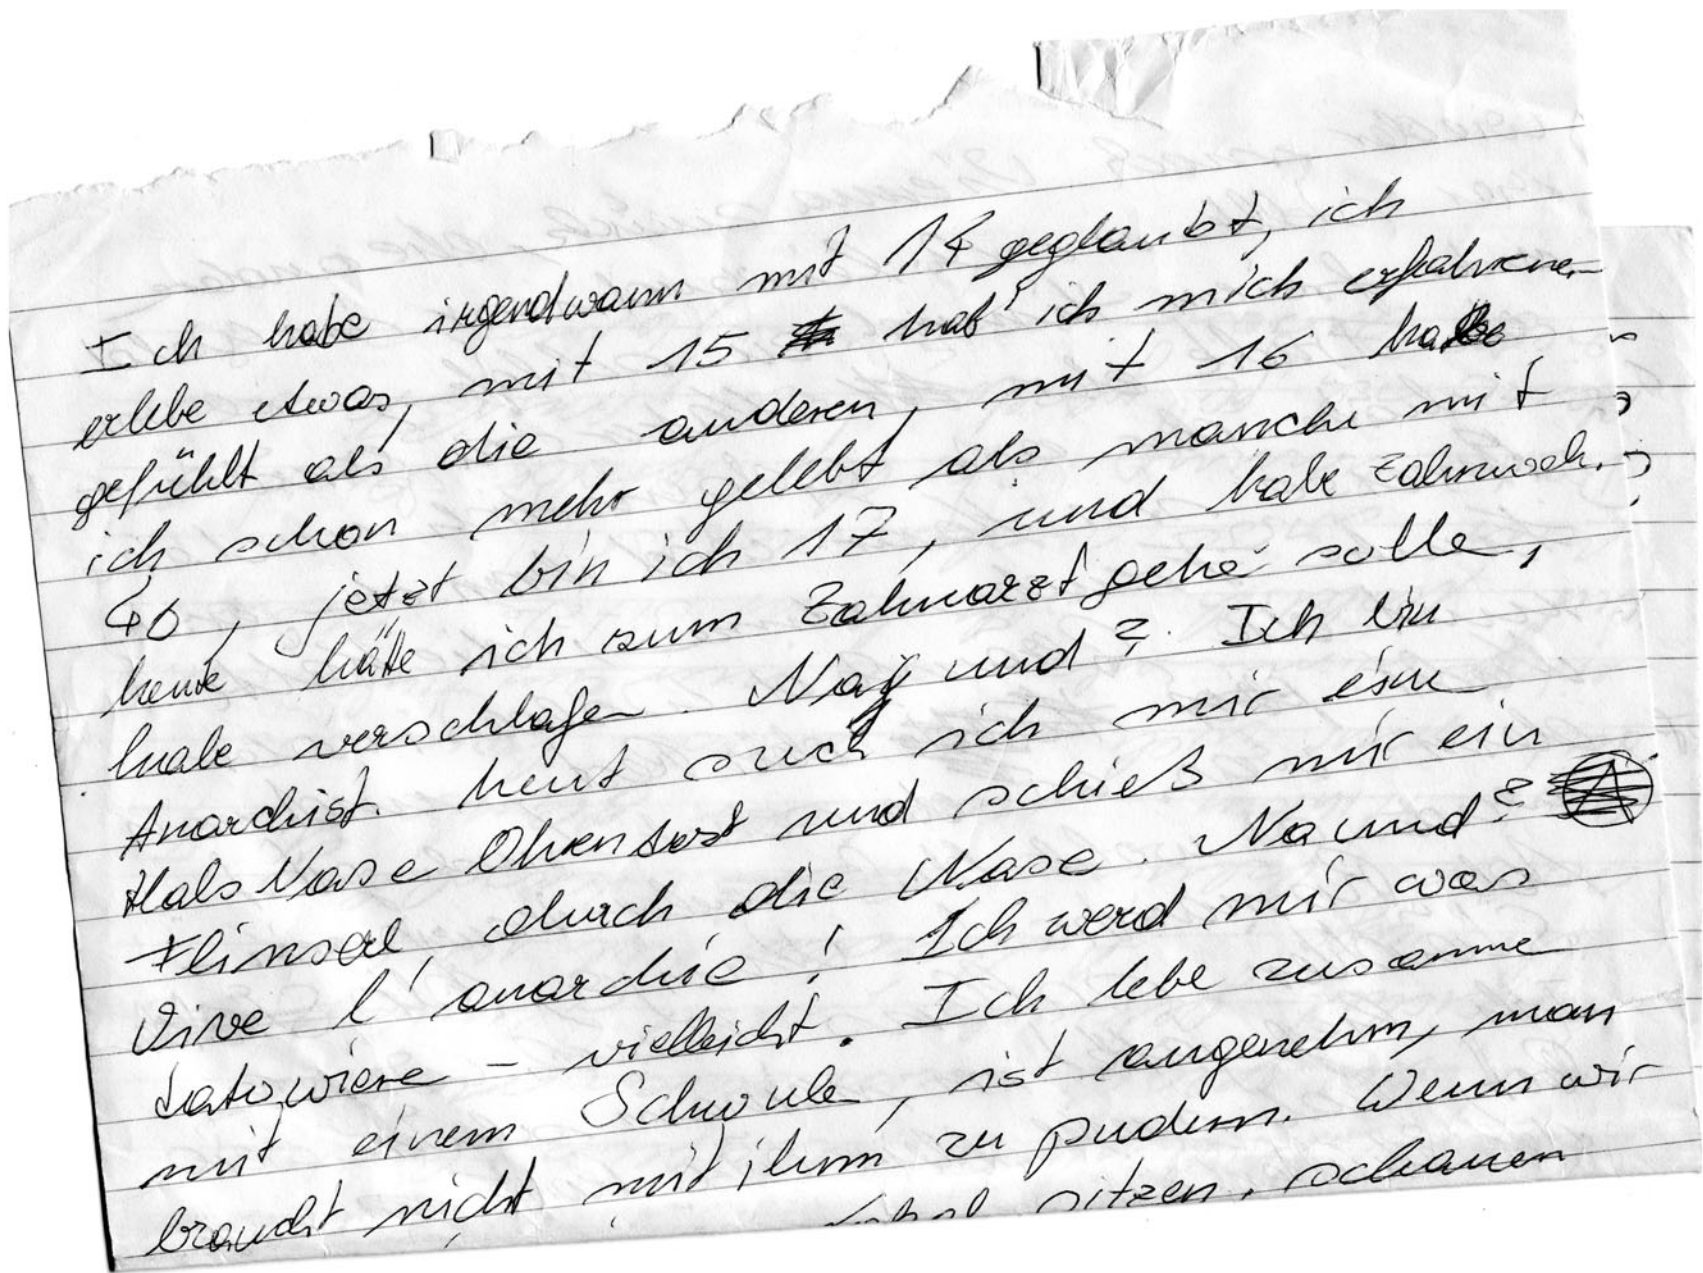 Ich habe irgendwann mit 14 geglaubt, ich
erlebe etwas, mit 15 hab' ich mich erfahrener
gefühlt als die anderen, mit 16 habe
ich schon mehr gelebt als manche mit
40, jetzt bin ich 17, und habe Zahnweh.
heute hätte ich zum Zahnarzt gehe solle,
habe verschlafen. Na und? Ich bin
Anarchist. heut such ich mir eine
Hals Nase Ohrenarzt und schieß mir ein
Flinserl, durch die Nase. Na und?
Vive l'anarchie! Ich werd mir was
tatowiere - vielleicht. Ich lebe zusamme
mit einem Schwule, ist angenehm, man
braucht nicht mit ihm zu pudern. Wenn wir
sitzen, schauen